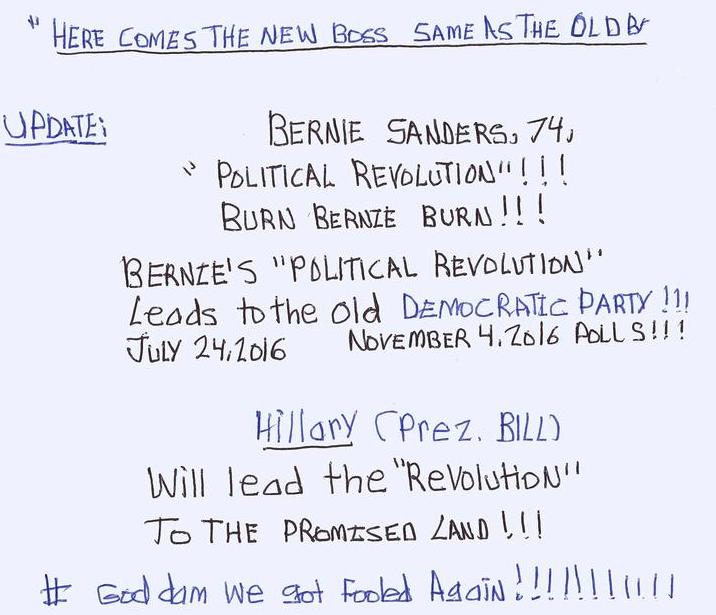 " HERE COMES THE NEW BOSS SAME AS THE OLD B
UPDATE:
BERNIE SANDERS, 74,
" POLITICAL REVOLUTION"!!!
BURN BERNIE BURN!!!
BERNIE'S "POLITICAL REVOLUTION"
Leads to the old DEMOCRATIC PARTY!!!
JULY 24, 2016 NOVEMBER 4, 2016 POLLS!!!
Hillary (Prez. BILL)
Will lead the "Revolution"
TO THE PROMISED LAND!!!
# God dam We got Fooled Again!!!!!!!!!!!!